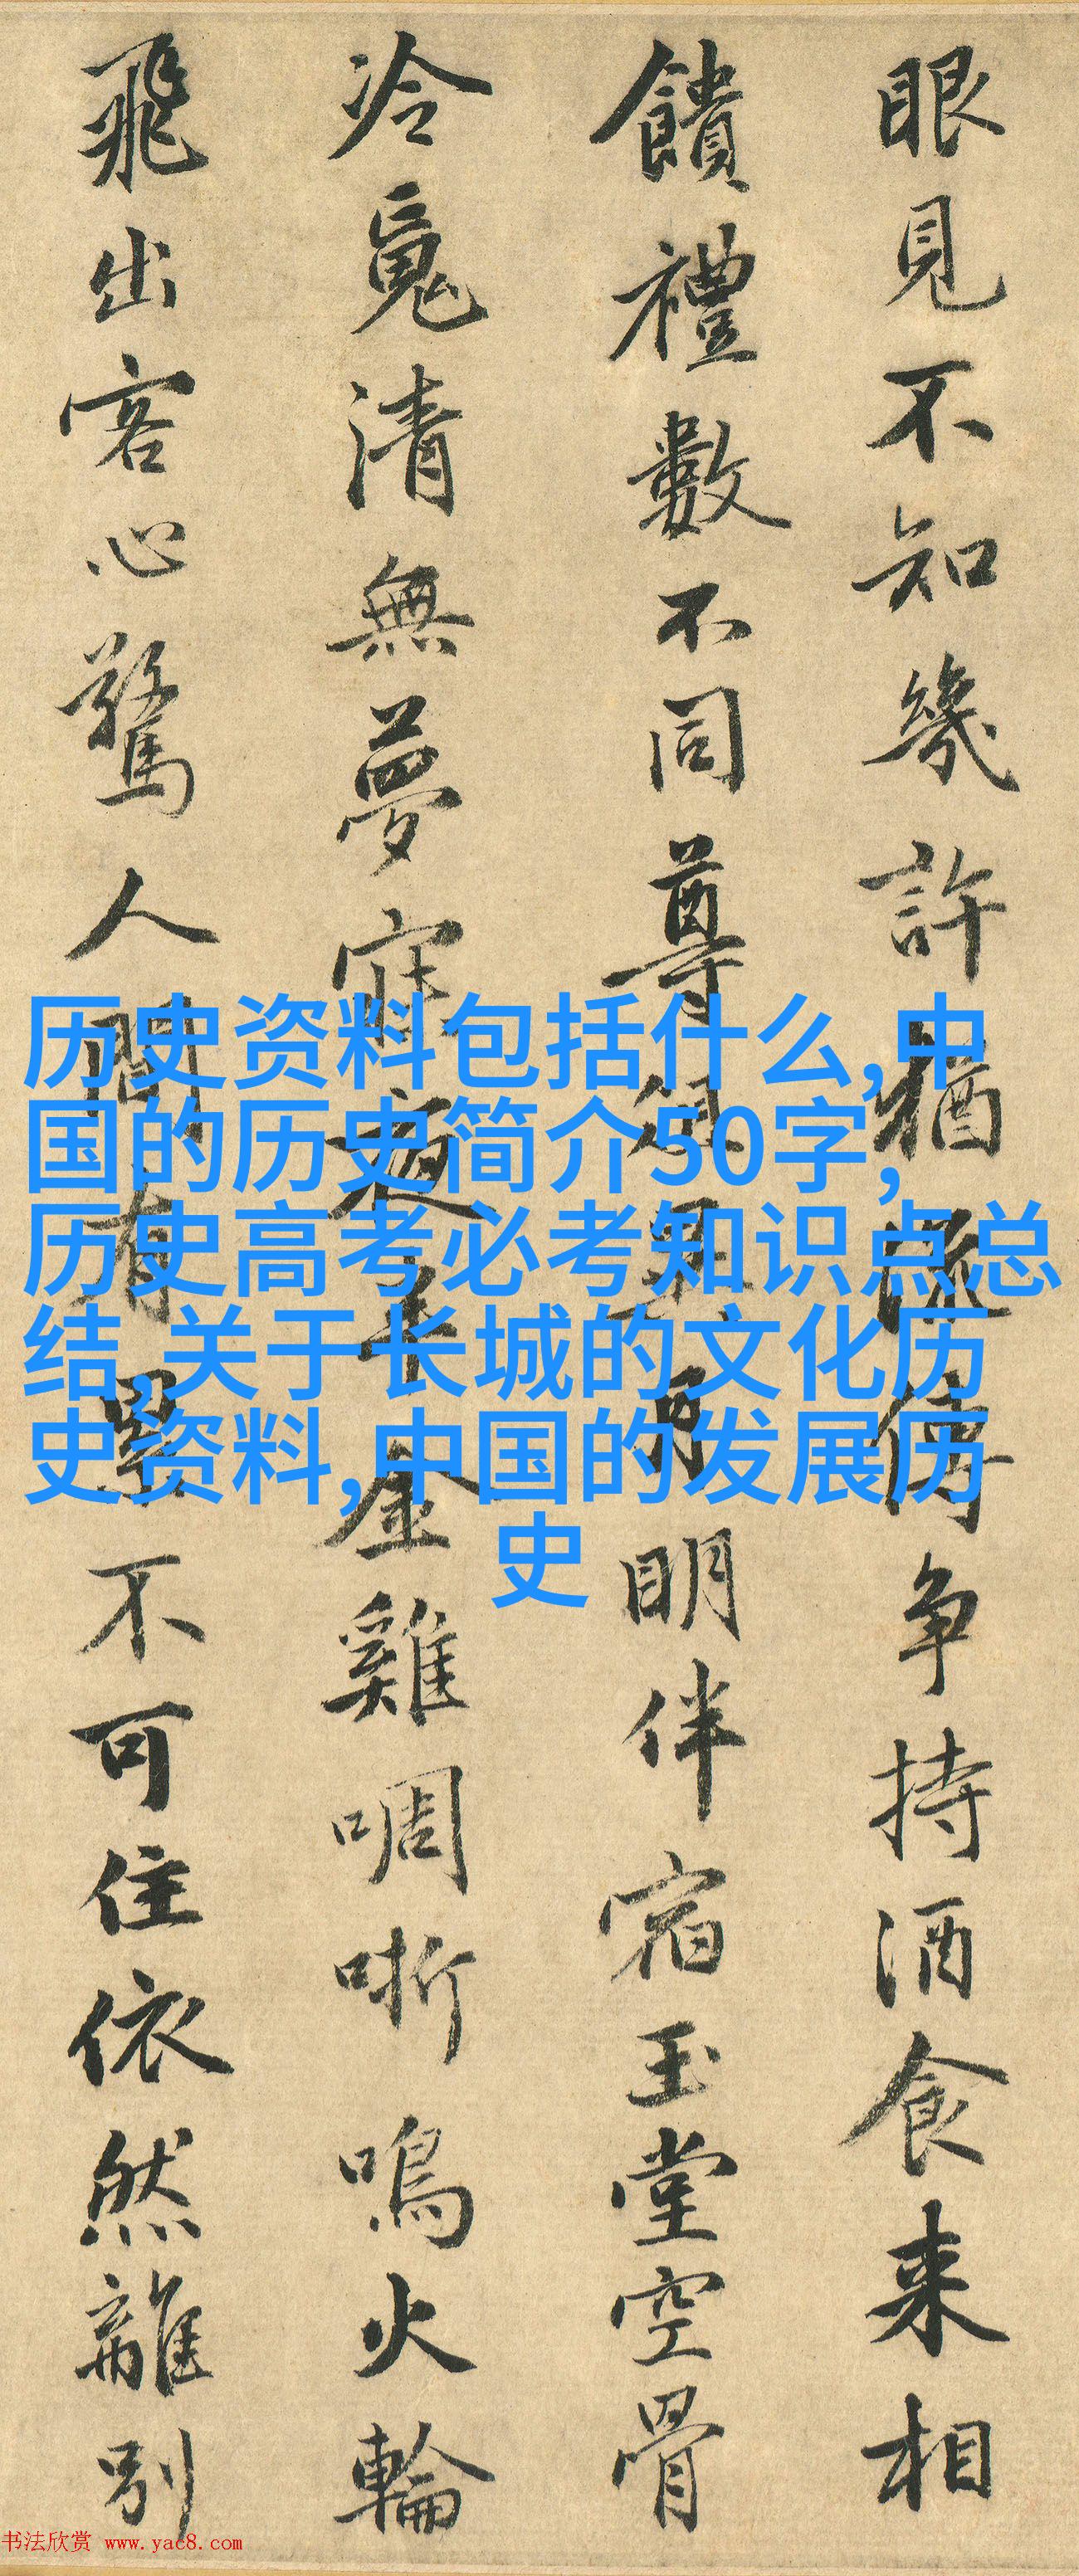 眼見不知幾許猶流傳争持酒食来相
饋禮數不同尊俎異月明伴宿玉堂空骨
冷魂清無夢寐夜半金雞啁哳鳴火輪
飛出客心驚人間有累不可住依然離別
历史资料包括什么,中
国的历史简介50字,
历史高考必考知识点总
结,关于长城的文化历
史资料,中国的发展历
史
书法欣赏 www.yac8.com